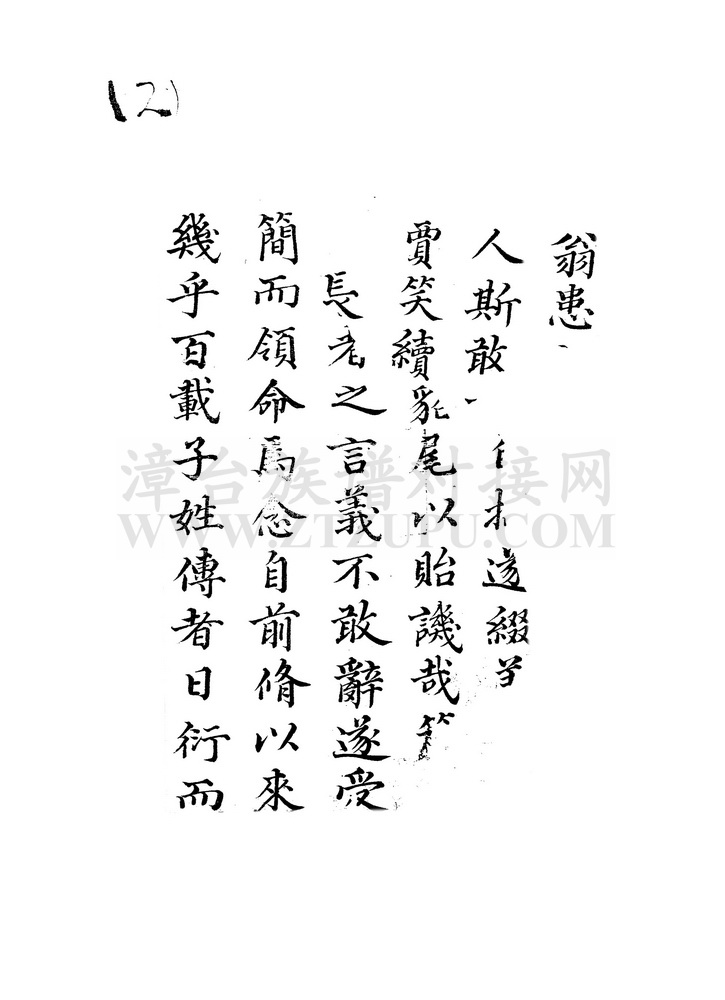 (2)
翁患
人斯敢自遂綴
賈笑續貂尾以貽譏哉第
長老之言義不敢辭遂受
簡而領命焉念自前脩以來
幾乎百載子姓傳者日衍而
漳台族谱对接网
WWW.ZTZUPU.COM